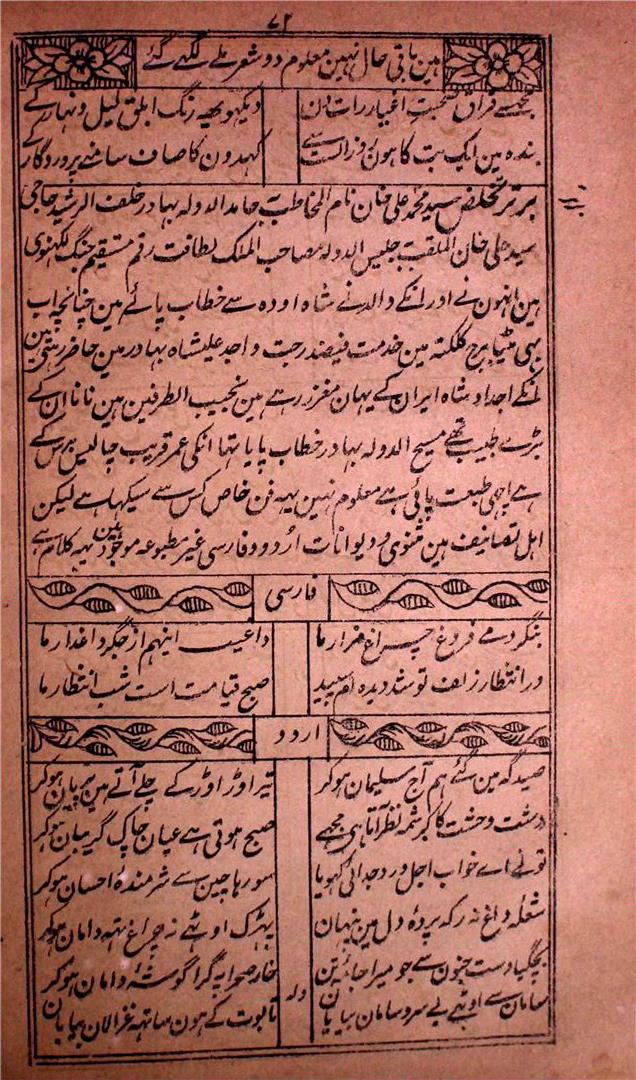 ۷۲
ہین باقی حال نہین معلوم دو شعر ملے لکہے گئے
صحبت اغیار رات دن دیکہو یہ رنگ ابلق لیل و نہار کے
بندہ مین ایک بت کا ہون روز الست سے کہدون کا صاف سامنے پروردگار کے
برتر تخلص سید محمد علی خان نام المخاطب حامد الدولہ بہادر خلف الرشید حاجی
سید علی خان الملقب جلیس الدولہ مصاحب الملک لطافت رقم مستقیم جنگ لکہنوی
ہین انہون نے اور انکے والد نے شاہ اودہ سے خطاب پائے ہین چنانچہ اب
بہی مٹیا برج کلکتہ مین خدمت فیضدرجت واجد علیشاہ بہادر مین حاضر رہتے ہین
انکے اجداد شاہ ایران کے یہان معزز رہے ہین نجیب الطرفین ہین نانا ان کے
بڑے طبیب تہے مسیح الدولہ بہادر خطاب پایا تہا انکی عمر قریب چالیس برس کے
ہے اچہی طبیعت پائی ہے معلوم نہین یہہ فن خاص کس سے سیکہا ہے لیکن
اہل تصانیف ہین مثنوی و دیوانات اردو و فارسی غیر مطبوعہ موجود ہین یہہ کلام ہے
فارسی
بنگر دمے فروغ چراغ مزار ما داغیست اینہم از جگر داغدار ما
در انتظار زلف تو شد دیدہ ام سپید صبح قیامت است شب انتظار ما
اردو
صیدگہ مین گئے ہم آج سلیمان ہوکر تیر اوڑ اوڑ کے چلے آتے ہین پریان ہوکر
دشت وحشت کا کرشمہ نظر آتا ہی مجہے صبح ہوتی ہے عیان چاک گریبان ہوکر
تونے اے خواب اجل درد جدائی کہویا سو رہا چین سے شرمندہ احسان ہوکر
شعلہ داغ نہ رکہ پردہ دل مین پنہان بہڑک اوٹہے نہ چراغ تہہ دامان ہوکر
بچگیا دست جنون سے جو میرا جامہ تن خار صحرا نے گرا گوشہ دامان ہوکر
ولہ
سامان سے اوٹہے بے سر و سامان بیابان تابوت کے ہون ساتہہ غزالان بیابان